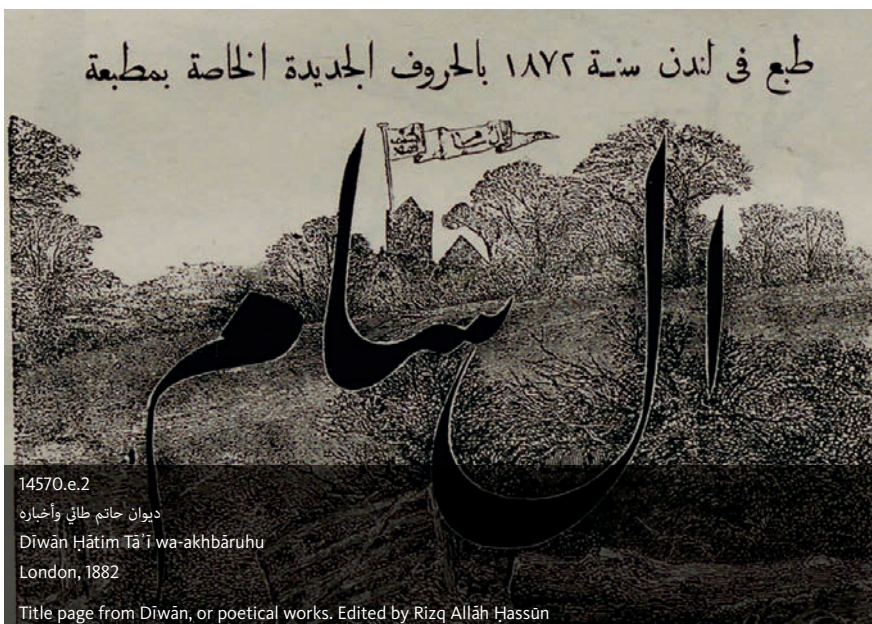 طبع في لندن سنة ١٨٧٢ بالحروف الجديدة الخاصة بمطبعة
ال سام
14570.e.2
ديوان حاتم طائي وأخباره
Dīwān Ḥātim Tāʾī wa-akhbāruhu
London, 1882
Title page from Dīwān, or poetical works. Edited by Rizq Allāh Ḥassūn